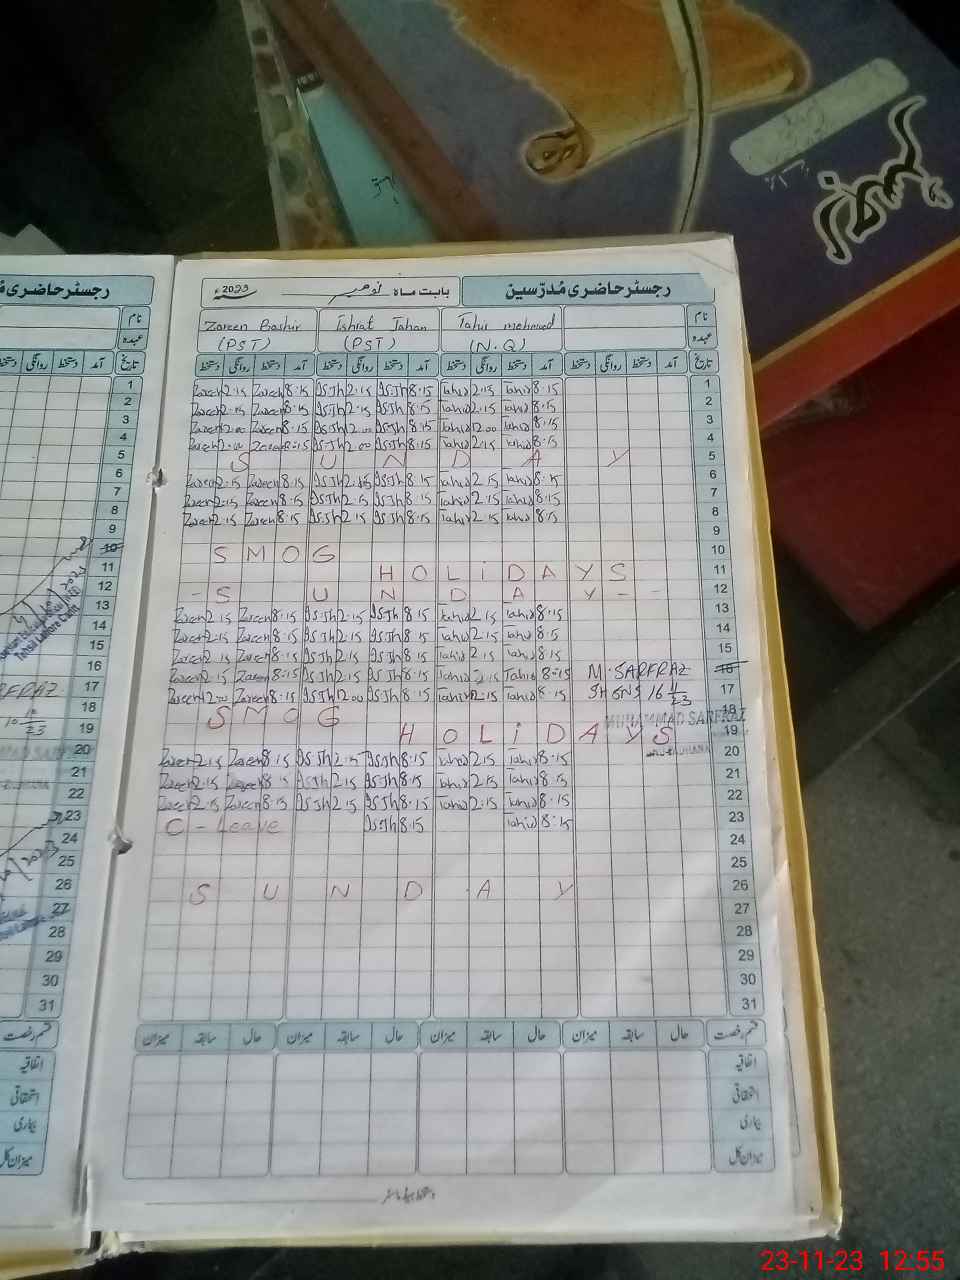 رجسٹر حاضری مُدرّسین بابت ماہ نومبر 2023ء
نام Zareen Bashir Ishrat Jahan Tahir mehmood
عہدہ (PST) (PST) (N.Q)
تاریخ آمد دستخط روانگی دستخط آمد دستخط روانگی دستخط آمد دستخط روانگی دستخط آمد دستخط روانگی دستخط
Zareen 2.15 Zareen 8.15 Is.Jh 2.15 Is.Jh 8.15 Tahir 2.15 Tahir 8.15 1
Zareen 2.15 Zareen 8.15 Is.Jh 2.15 Is.Jh 8.15 Tahir 2.15 Tahir 8.15 2
Zareen 12.00 Zareen 8.15 Is.Jh 12.00 Is.Jh 8.15 Tahir 12.00 Tahir 8.15 3
Zareen Zareen 8.15 Is.Jh 2.00 Is.Jh 8.15 Tahir 2.15 Tahir 8.15 4
S U N D A Y 5
Zareen 2.15 Zareen 8.15 Is.Jh 2.15 Is.Jh 8.15 Tahir 2.15 Tahir 8.15 6
Zareen 2.15 Zareen 8.15 Is.Jh 2.15 Is.Jh 8.15 Tahir 2.15 Tahir 8.15 7
Zareen 2.15 Zareen 8.15 Is.Jh 2.15 Is.Jh 8.15 Tahir 2.15 Tahir 8.15 8
9
SMOG 10
HOLiDAYS 11
- S U N D A Y - - 12
Zareen 2.15 Zareen 8.15 Is.Jh 2.15 Is.Jh 8.15 Tahir 2.15 Tahir 8.15 13
Zareen 2.15 Zareen 8.15 Is.Jh 2.15 Is.Jh 8.15 Tahir 2.15 Tahir 8.15 14
Zareen 2.15 Zareen 8.15 Is.Jh 2.15 Is.Jh 8.15 Tahir 2.15 Tahir 8.15 15
Zareen 2.15 Zareen 8.15 Is.Jh 2.15 Is.Jh 8.15 Tahir 2.15 Tahir 8.15 M.SARFRAZ 16
Zareen 12.00 Zareen 8.15 Is.Jh 12.00 Is.Jh 8.15 Tahir 12.15 Tahir 8.15 16 11/23 17
SMOG MUHAMMAD SARFRAZ 18
HOLiDAYS 19
Zareen 2.15 Zareen 8.15 Is.Jh 2.15 Is.Jh 8.15 Tahir 2.15 Tahir 8.15 20
Zareen 2.15 Zareen 8.15 Is.Jh 2.15 Is.Jh 8.15 Tahir 2.15 Tahir 8.15 21
Zareen 2.15 Zareen 8.15 Is.Jh 2.15 Is.Jh 8.15 Tahir 2.15 Tahir 8.15 22
C - Leave Is.Jh 8.15 Tahir 8.15 23
24
25
S U N D A Y 26
27
28
29
30
31
قسم رخصت حال سابقہ میزان حال سابقہ میزان حال سابقہ میزان حال سابقہ میزان
اتفاقیہ
استحقاقی
بیماری
میزان کل
دستخط ہیڈ ماسٹر
23-11-23 12.55